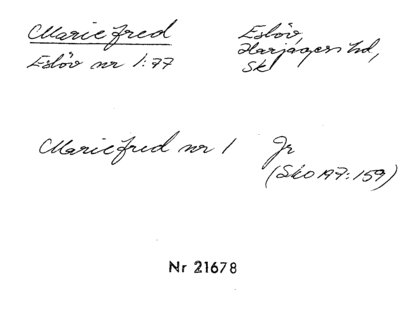 Mariefred
Eslöv nr 1:77
Eslöv,
Harjagers hd,
Sk
Mariefred nr 1 Jr
(Sko A7:159)
Nr 21678